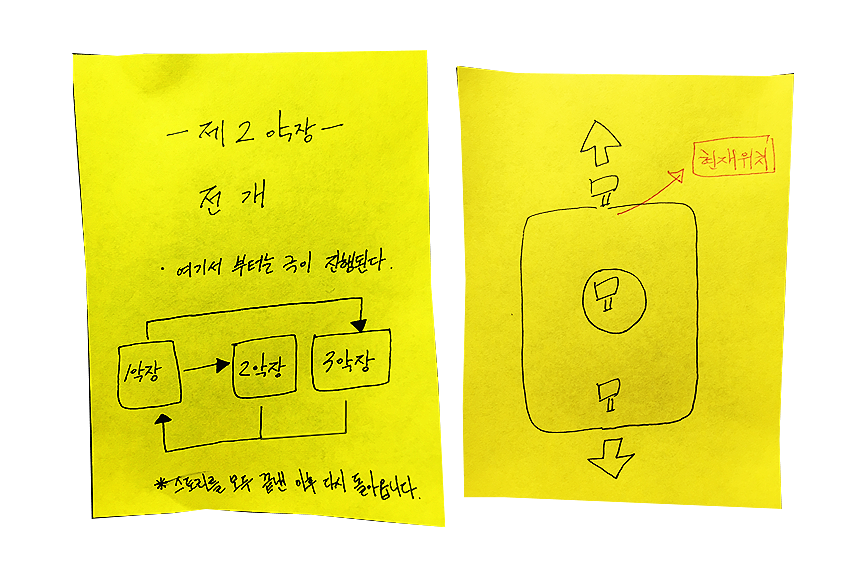 - 제 2 악장 -
전 개
· 여기서 부터는 극이 진행된다.
1악장
2악장
3악장
*스토리를 모두 끝낸 이후 다시 돌아옵니다.
현재위치